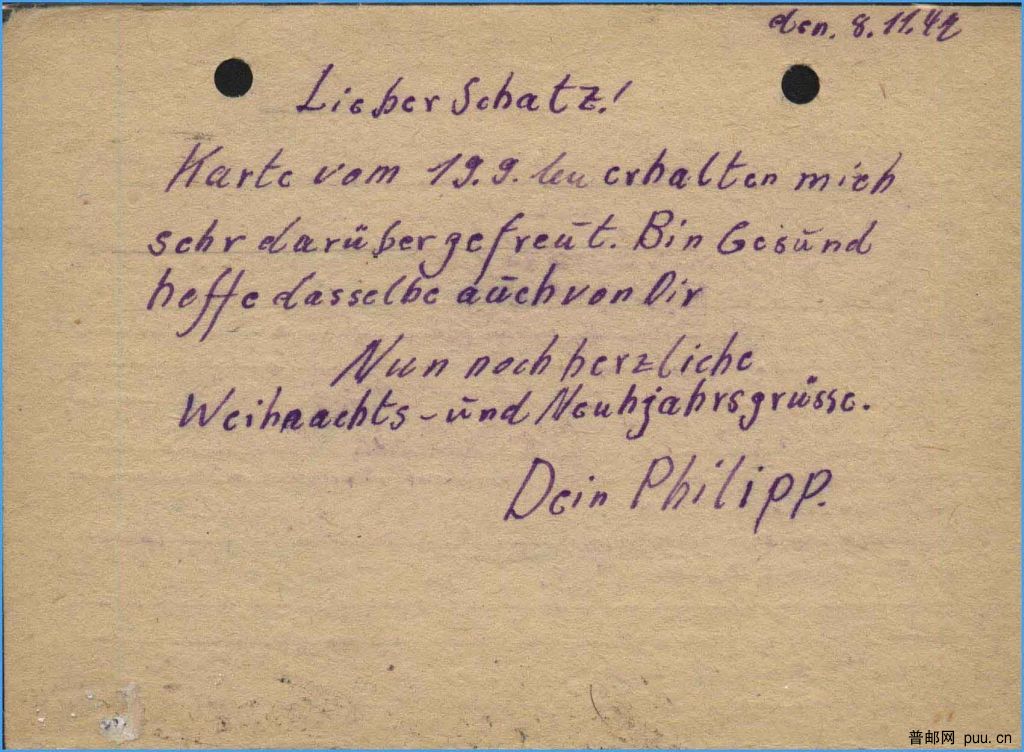 den. 8.11.47
Lieber Schatz!
Karte vom 19.9. erhalten mich
sehr darüber gefreut. Bin Gesund
hoffe dasselbe auch von Dir
Nun noch herzliche
Weihnachts-und Neuhjahrsgrüsse.
Dein Philipp.
普邮网 puu.cn